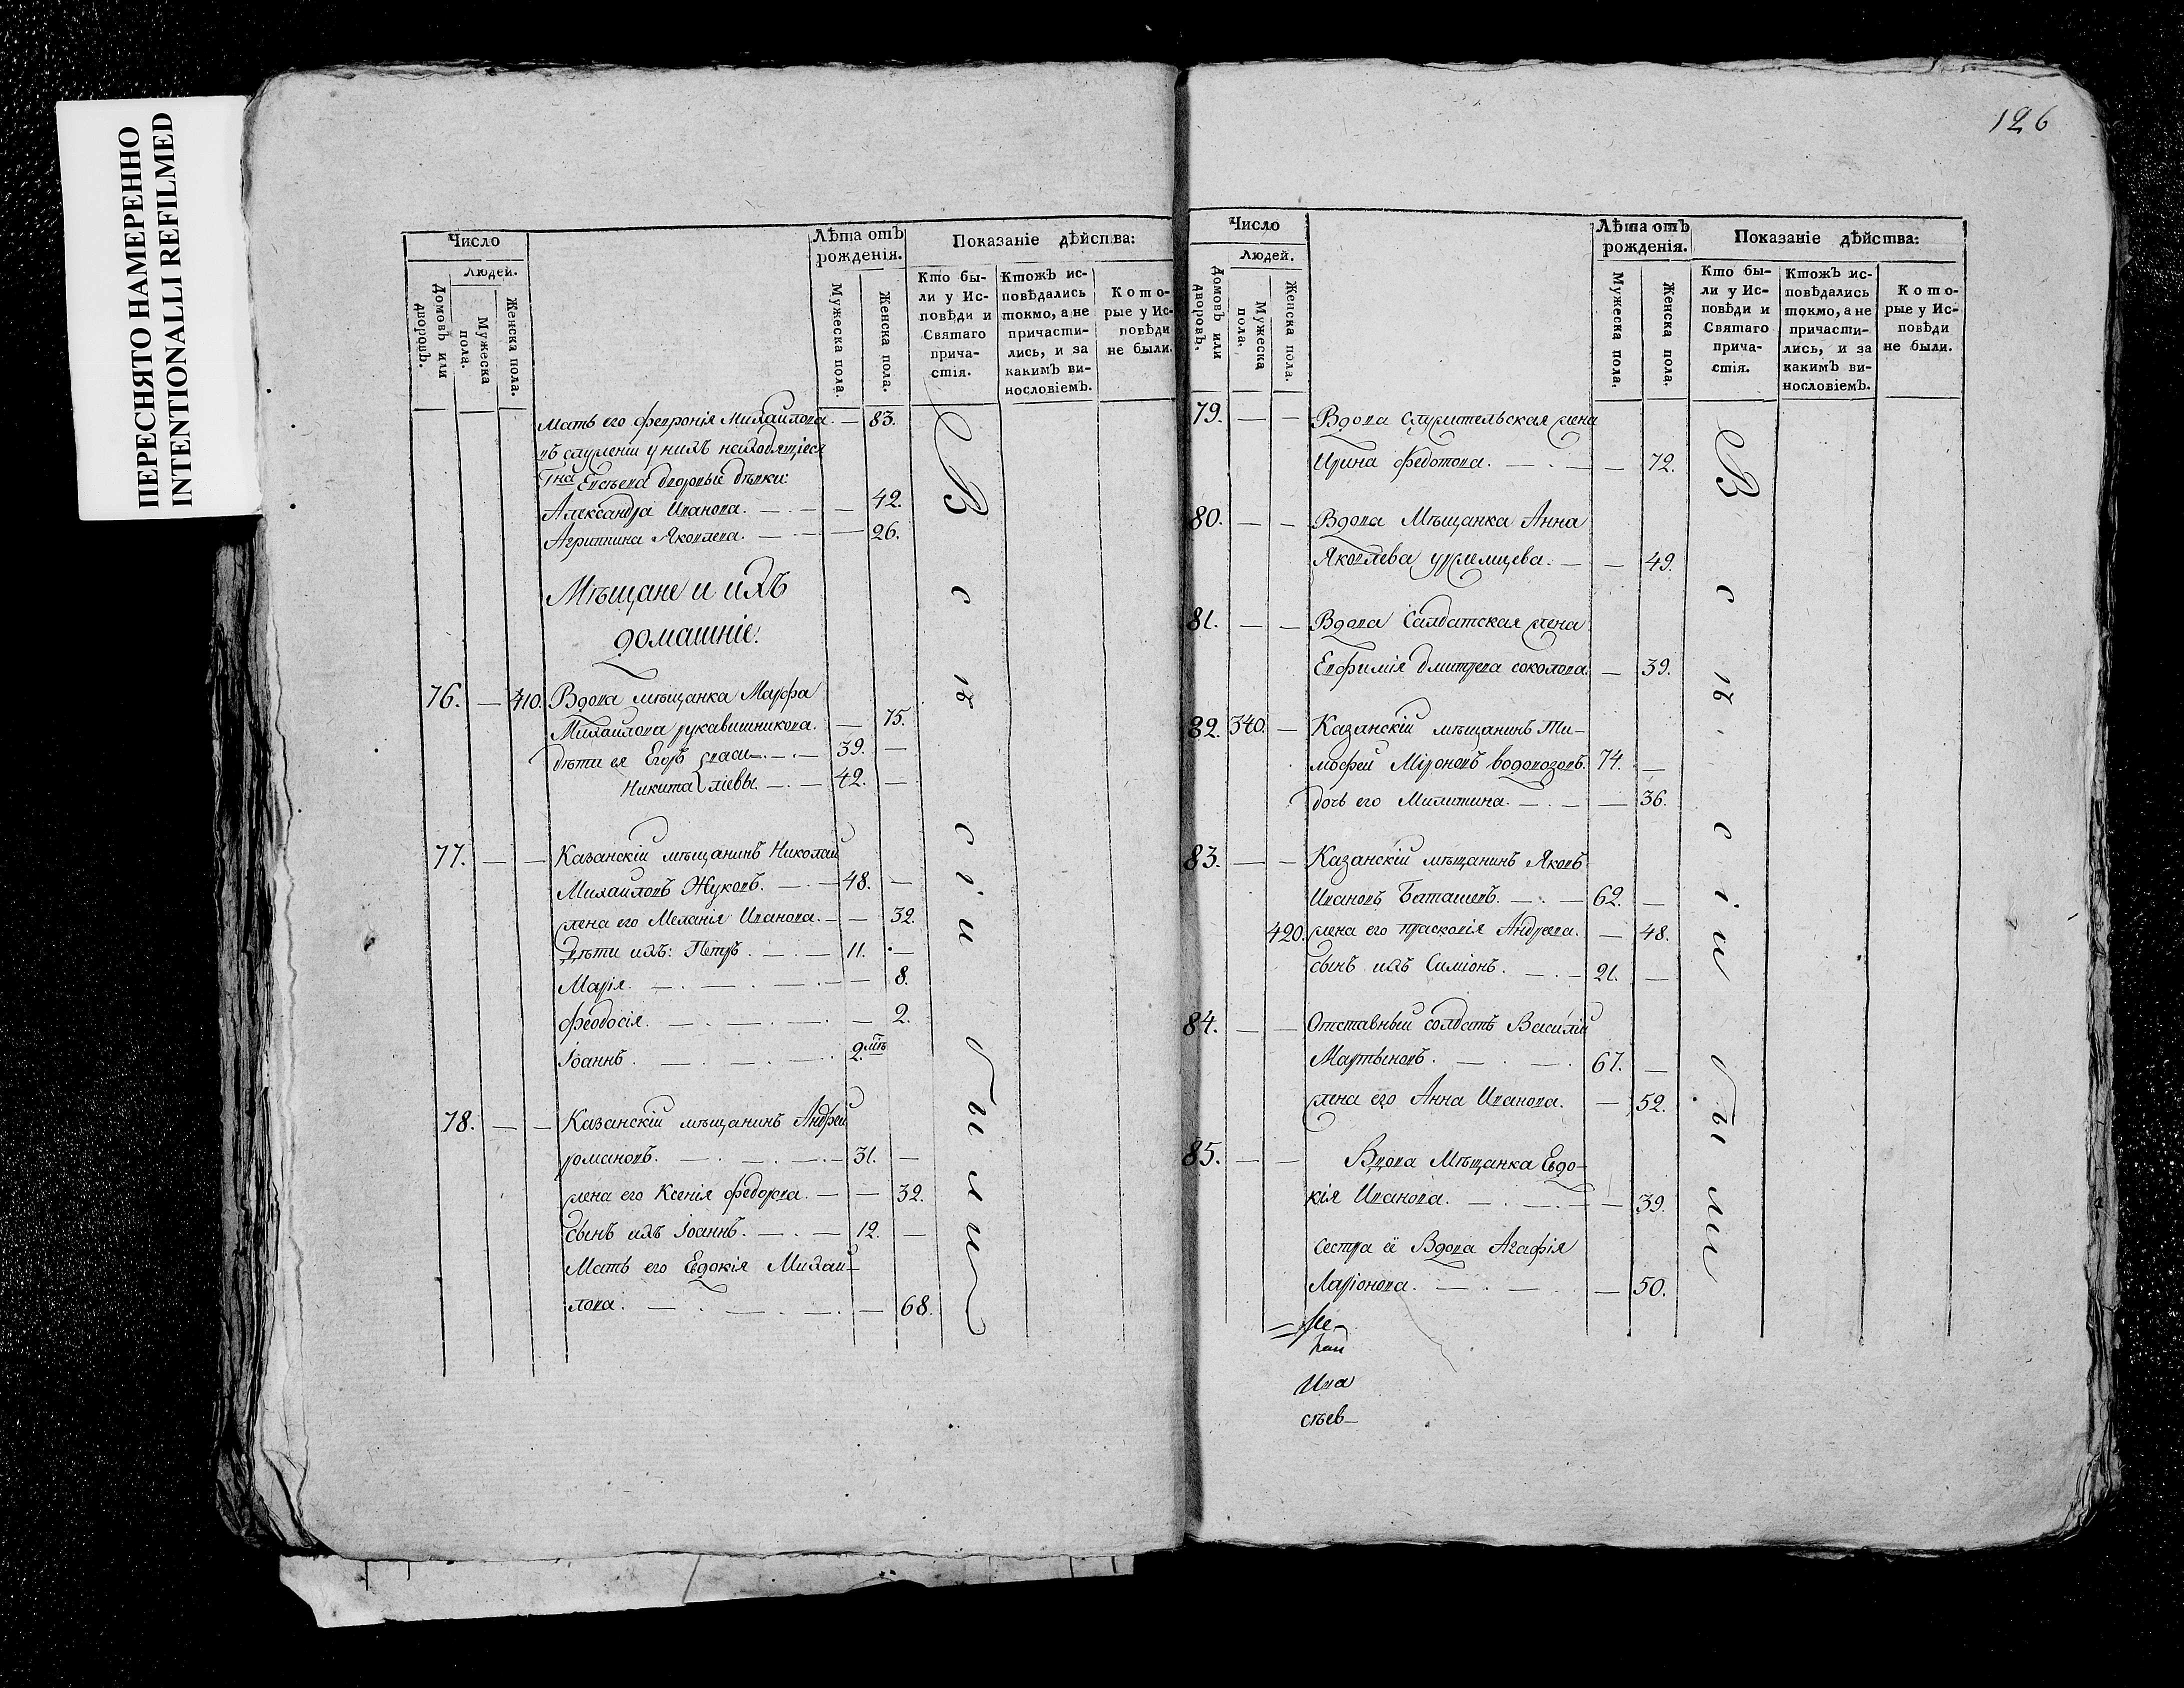 ПЕРЕСНЯТО НАМЕРЕННО
INTENTIONALLI REFILMED
Число
Людей.
Домовъ или дворовъ.
Мужеска пола.
Женска пола.
Лѣта отъ рожденія.
Мужеска пола.
Женска пола.
Показаніе дѣйства:
Кто бы-
ли у Ис-
повѣди и
Святаго
прича-
стія.
Ктожъ ис-
повѣдались
токмо, а не
причасти-
лись, и за
какимъ ви-
нословіемъ.
Кото-
рые у Ис-
повѣди
не были.
Мать его Февронія Михаилова. — 83.
въ служеніи у нихъ находящіеся
Гна Евсѣева дворовые дѣвки:
Александра Иванова. — 42.
Агрипина Яковлева. — 26.
Мѣщане и ихъ
домашніе.
76. — 410. Вдова мѣщанка Марфа
Михаилова рукавишникова. — 75.
дѣти ея Егоръ — 39. —
Никита — 42. —
77. — — Казанскій мѣщанинъ Николай
Михаиловъ Жуковъ. — 48. —
жена его Меланія Иванова. — 32.
Дѣти ихъ: Петръ. — 11. —
Марія. — 8.
Феодосія. — 2.
Іоаннъ. — 2. мѣ
78. — — Казанскій мѣщанинъ Андрей
романовъ. — 31. —
жена его Ксенія Федорова. — 32.
сынъ ихъ Іоаннъ. — 12. —
Мать его Евдокія Михаи-
лова. — 68.
Всѣ сіи были
126
Число
Людей.
Домовъ или дворовъ.
Мужеска пола.
Женска пола.
Лѣта отъ рожденія.
Мужеска пола.
Женска пола.
Показаніе дѣйства:
Кто бы-
ли у Ис-
повѣди и
Святаго
прича-
стія.
Ктожъ ис-
повѣдались
токмо, а не
причасти-
лись, и за
какимъ ви-
нословіемъ.
Кото-
рые у Ис-
повѣди
не были.
79. — — Вдова служительская жена
Ирина Федотова. — 72.
80. — — Вдова Мѣщанка Анна
Яковлева — 49.
81. — — Вдова Салдатская жена
Евфимія дмитрева соколова. — 39.
82. 340. — Казанскій мѣщанинъ Ти-
мофей Міроновъ водовозовъ. 74. —
дочь его Милитина. — 36.
83. — — Казанскій мѣщанинъ Яковъ
Ивановъ Баташевъ. — 62. —
420. жена его прасковія Андреева. — 48.
сынъ ихъ Симіонъ. — 21. —
84. — — Отставный солдатъ Василій
Мартыновъ. 67. —
жена его Анна Иванова. — 52.
85. — — Вдова Мѣщанка Евдо-
кія Иванова. — 39.
сестра ея Вдова Агафія
Ларіонова. — 50.
Всѣ сіи были
Ива
сѣев-